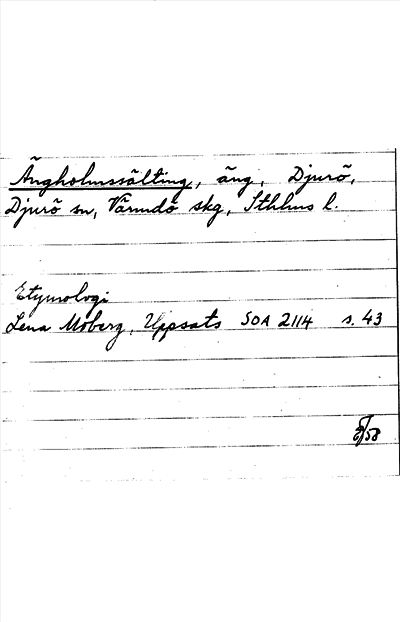 Ängholmssälting, äng, Djurö,
Djurö sn, Värmdö skg, Sthlms l.
Etymologi
Lena Moberg, Uppsats SOA 2114 s. 43